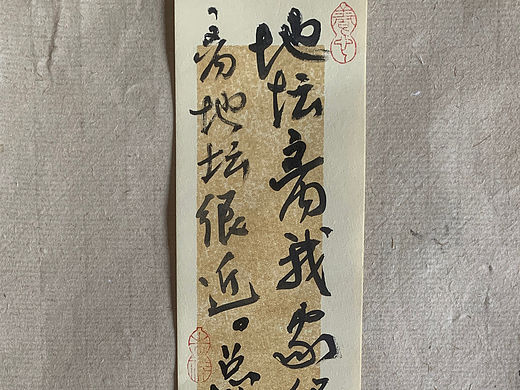 地坛离我家
离地坛很近。总